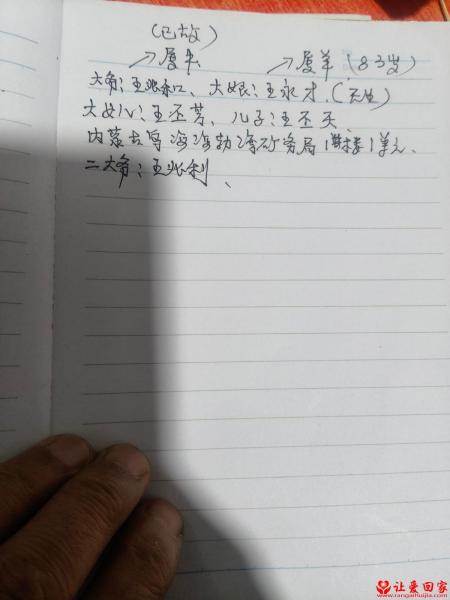 (已故)
→属牛 →属羊 (83岁)
大爷：王兆和、大娘：王永才.(医生)
大女儿：王丕芳、儿子：王丕天、
内蒙古 海勃湾矿务局 1单元、
二大爷：王兆利、
让爱回家
www.rangaihuijia.com